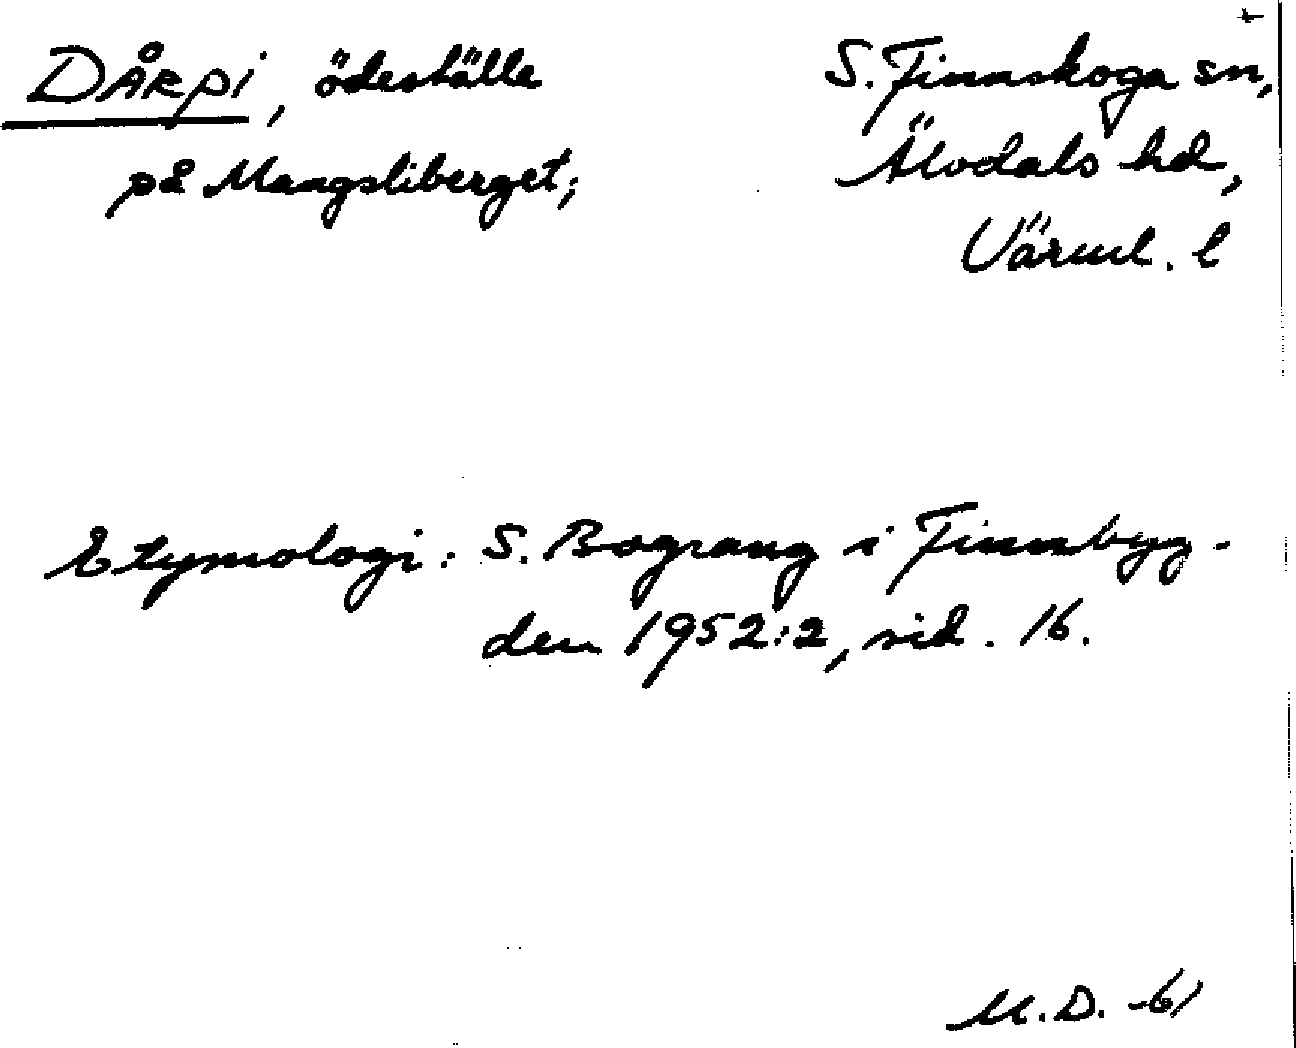 DÅRPI, ödeställe
på Mangsliberget;
S. Finnskoga sn,
Älvdals hd,
Värml. l
Etymologi: S. Bograng i Finnbyg-
den 1952:2, sid. 16.
M.D. -61